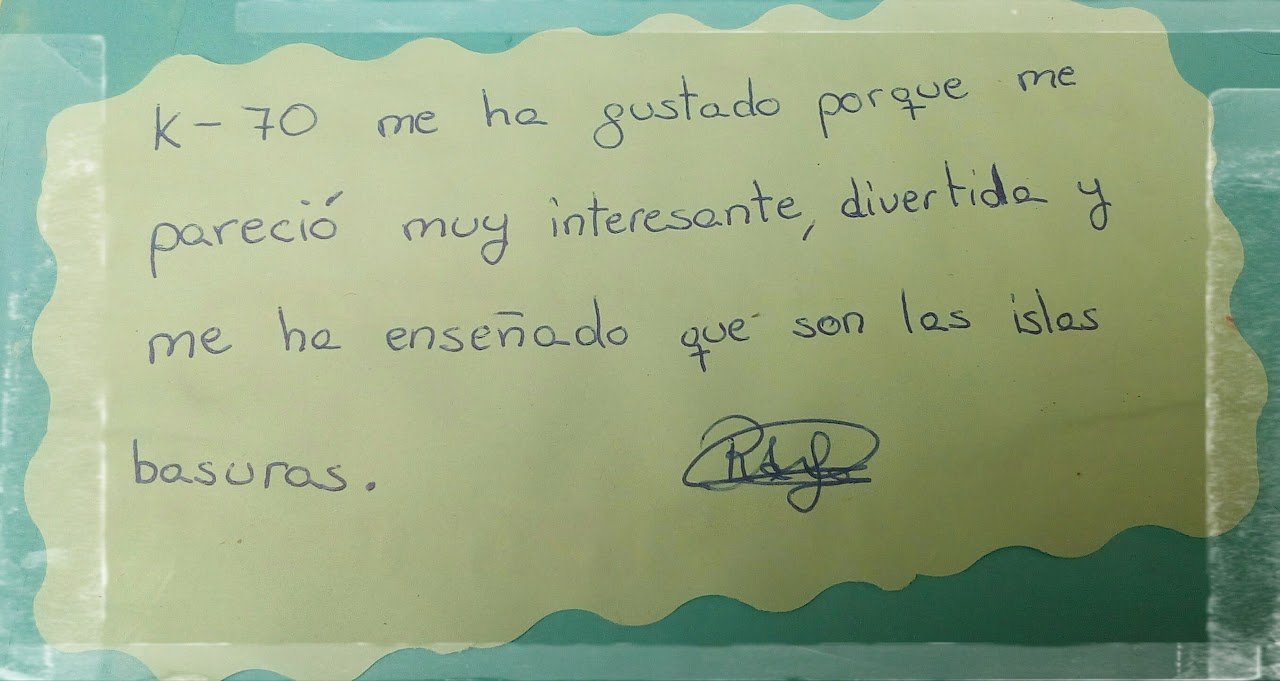 K-70 me ha gustado porque me
pareció muy interesante, divertida y
me ha enseñado que son las islas
basuras.